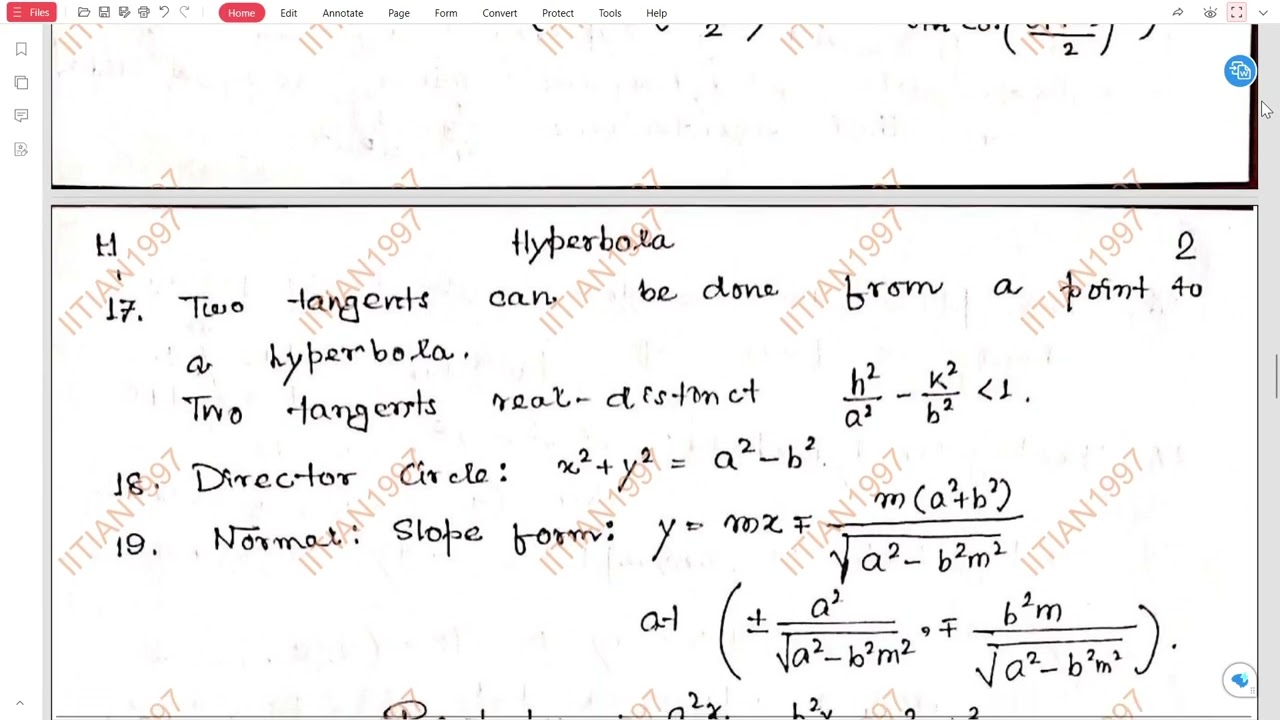 Files Home Edit Annotate Page Form Convert Protect Tools Help
H Hyperbola 2
17. Two tangents can be done from a point to
a hyperbola.
Two tangents real-distinct h²/a² - k²/b² < 1.
18. Director Circle: x² + y² = a² - b².
19. Normal: Slope form: y = mx ∓ m(a²+b²)/√(a² - b²m²)
at (± a²/√(a² - b²m²), ∓ b²m/√(a² - b²m²)).
IITIAN1997